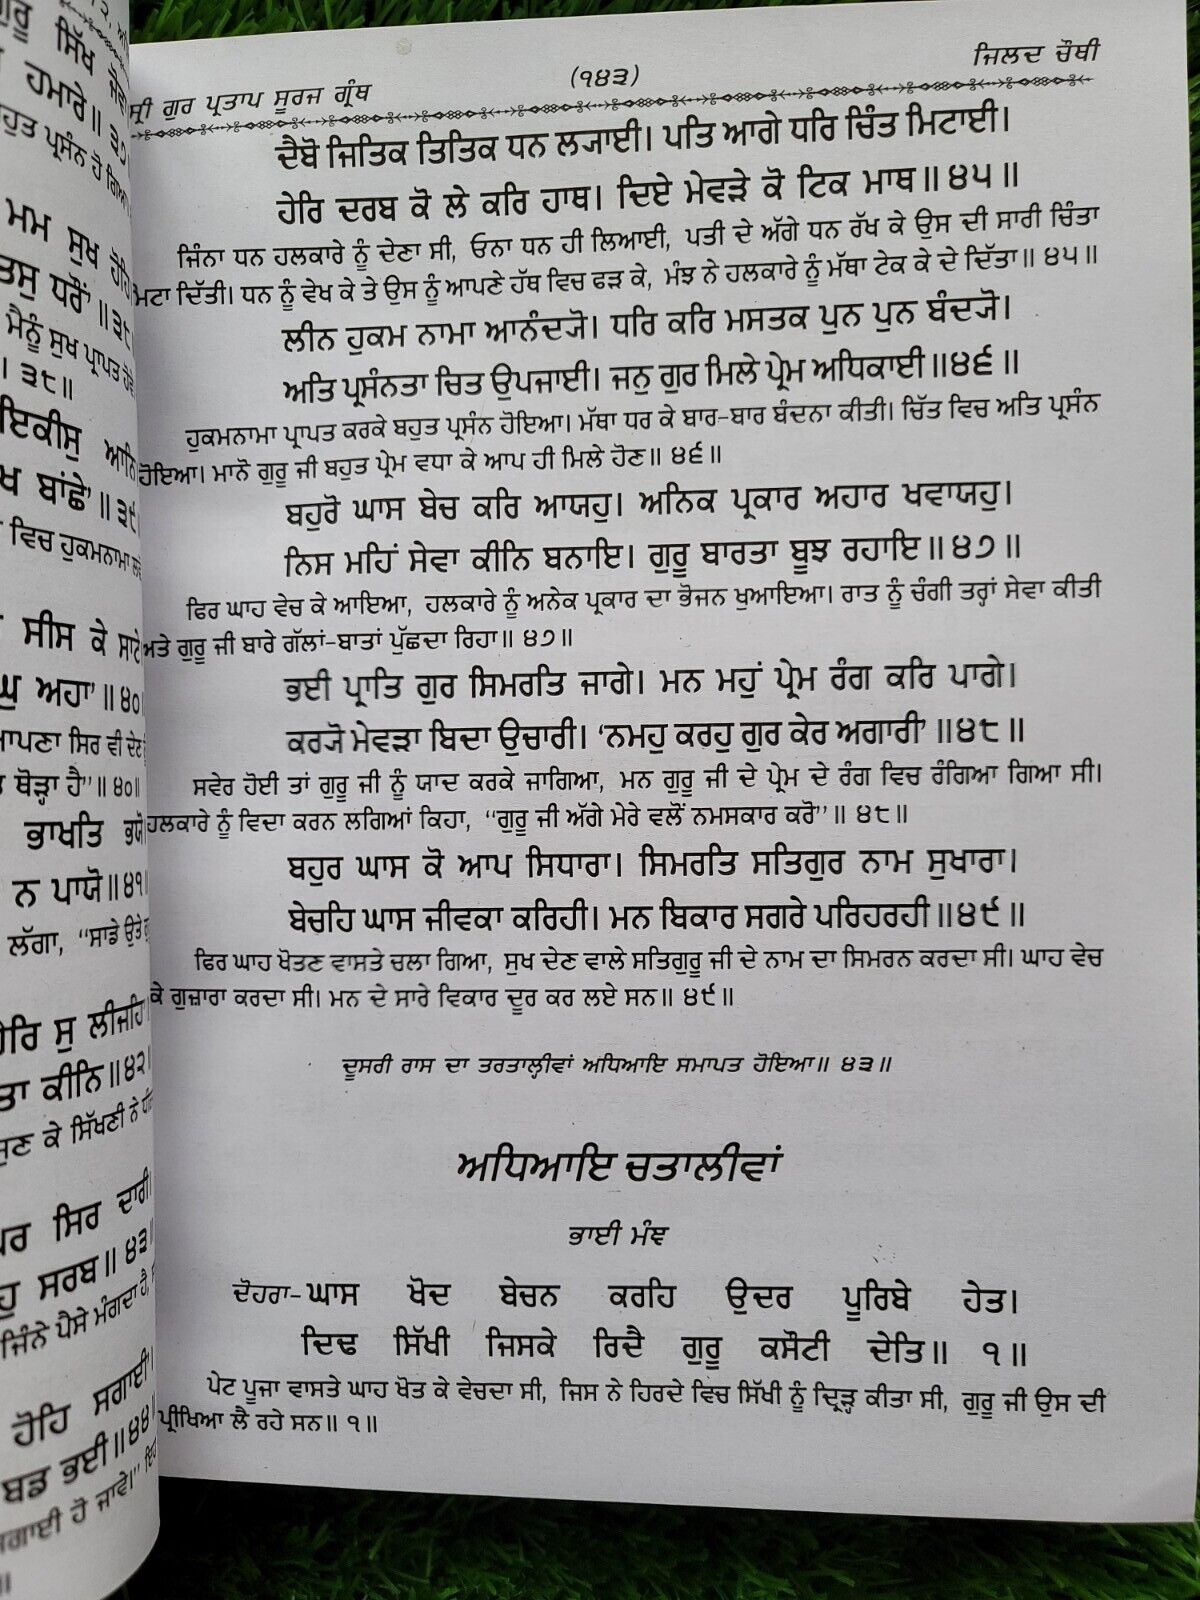 ਸ੍ਰੀ ਗੁਰ ਪ੍ਰਤਾਪ ਸੂਰਜ ਗ੍ਰੰਥ
(੧੪੩)
ਜਿਲਦ ਚੌਥੀ
ਦੈਬੋ ਜਿਤਿਕ ਤਿਤਿਕ ਧਨ ਲ੍ਯਾਈ। ਪਤਿ ਆਗੇ ਧਰਿ ਚਿੰਤ ਮਿਟਾਈ।
ਹੇਰਿ ਦਰਬ ਕੋ ਲੇ ਕਰਿ ਹਾਥ। ਦਿਏ ਮੇਵੜੇ ਕੋ ਟਿਕ ਮਾਥ॥੪੫॥
ਜਿੰਨਾ ਧਨ ਹਲਕਾਰੇ ਨੂੰ ਦੇਣਾ ਸੀ, ਓਨਾ ਧਨ ਹੀ ਲਿਆਈ, ਪਤੀ ਦੇ ਅੱਗੇ ਧਨ ਰੱਖ ਕੇ ਉਸ ਦੀ ਸਾਰੀ ਚਿੰਤਾ
ਮਿਟਾ ਦਿੱਤੀ। ਧਨ ਨੂੰ ਵੇਖ ਕੇ ਤੇ ਉਸ ਨੂੰ ਆਪਣੇ ਹੱਥ ਵਿਚ ਫੜ ਕੇ, ਮੰਝ ਨੇ ਹਲਕਾਰੇ ਨੂੰ ਮੱਥਾ ਟੇਕ ਕੇ ਦੇ ਦਿੱਤਾ॥ ੪੫॥
ਲੀਨ ਹੁਕਮ ਨਾਮਾ ਆਨੰਦ੍ਯੋ। ਧਰਿ ਕਰਿ ਮਸਤਕ ਪੁਨ ਪੁਨ ਬੰਦ੍ਯੋ।
ਅਤਿ ਪ੍ਰਸੰਨਤਾ ਚਿਤ ਉਪਜਾਈ। ਜਨੁ ਗੁਰ ਮਿਲੇ ਪ੍ਰੇਮ ਅਧਿਕਾਈ॥੪੬॥
ਹੁਕਮਨਾਮਾ ਪ੍ਰਾਪਤ ਕਰਕੇ ਬਹੁਤ ਪ੍ਰਸੰਨ ਹੋਇਆ। ਮੱਥਾ ਧਰ ਕੇ ਬਾਰ-ਬਾਰ ਬੰਦਨਾ ਕੀਤੀ। ਚਿੱਤ ਵਿਚ ਅਤਿ ਪ੍ਰਸੰਨ
ਹੋਇਆ। ਮਾਨੋ ਗੁਰੂ ਜੀ ਬਹੁਤ ਪ੍ਰੇਮ ਵਧਾ ਕੇ ਆਪ ਹੀ ਮਿਲੇ ਹੋਣ॥ ੪੬॥
ਬਹੁਰੋ ਘਾਸ ਬੇਚ ਕਰਿ ਆਯਹੁ। ਅਨਿਕ ਪ੍ਰਕਾਰ ਅਹਾਰ ਖਵਾਯਹੁ।
ਨਿਸ ਮਹਿਂ ਸੇਵਾ ਕੀਨਿ ਬਨਾਇ। ਗੁਰੂ ਬਾਰਤਾ ਬੂਝ ਰਹਾਇ॥੪੭॥
ਫਿਰ ਘਾਹ ਵੇਚ ਕੇ ਆਇਆ, ਹਲਕਾਰੇ ਨੂੰ ਅਨੇਕ ਪ੍ਰਕਾਰ ਦਾ ਭੋਜਨ ਖੁਆਇਆ। ਰਾਤ ਨੂੰ ਚੰਗੀ ਤਰ੍ਹਾਂ ਸੇਵਾ ਕੀਤੀ
ਅਤੇ ਗੁਰੂ ਜੀ ਬਾਰੇ ਗੱਲਾਂ-ਬਾਤਾਂ ਪੁੱਛਦਾ ਰਿਹਾ॥ ੪੭॥
ਭਈ ਪ੍ਰਾਤਿ ਗੁਰ ਸਿਮਰਤਿ ਜਾਗੇ। ਮਨ ਮਹੁਂ ਪ੍ਰੇਮ ਰੰਗ ਕਰਿ ਪਾਗੇ।
ਕਰ੍ਯੋ ਮੇਵੜਾ ਬਿਦਾ ਉਚਾਰੀ। ‘ਨਮਹੁ ਕਰਹੁ ਗੁਰ ਕੇਰ ਅਗਾਰੀ’॥੪੮॥
ਸਵੇਰ ਹੋਈ ਤਾਂ ਗੁਰੂ ਜੀ ਨੂੰ ਯਾਦ ਕਰਕੇ ਜਾਗਿਆ, ਮਨ ਗੁਰੂ ਜੀ ਦੇ ਪ੍ਰੇਮ ਦੇ ਰੰਗ ਵਿਚ ਰੰਗਿਆ ਗਿਆ ਸੀ।
ਹਲਕਾਰੇ ਨੂੰ ਵਿਦਾ ਕਰਨ ਲਗਿਆਂ ਕਿਹਾ, “ਗੁਰੂ ਜੀ ਅੱਗੇ ਮੇਰੇ ਵਲੋਂ ਨਮਸਕਾਰ ਕਰੋ”॥ ੪੮॥
ਬਹੁਰ ਘਾਸ ਕੋ ਆਪ ਸਿਧਾਰਾ। ਸਿਮਰਤਿ ਸਤਿਗੁਰ ਨਾਮ ਸੁਖਾਰਾ।
ਬੇਚਹਿ ਘਾਸ ਜੀਵਕਾ ਕਰਿਹੀ। ਮਨ ਬਿਕਾਰ ਸਗਰੇ ਪਰਿਹਰਹੀ॥੪੯॥
ਫਿਰ ਘਾਹ ਖੋਤਣ ਵਾਸਤੇ ਚਲਾ ਗਿਆ, ਸੁਖ ਦੇਣ ਵਾਲੇ ਸਤਿਗੁਰੂ ਜੀ ਦੇ ਨਾਮ ਦਾ ਸਿਮਰਨ ਕਰਦਾ ਸੀ। ਘਾਹ ਵੇਚ
ਕੇ ਗੁਜ਼ਾਰਾ ਕਰਦਾ ਸੀ। ਮਨ ਦੇ ਸਾਰੇ ਵਿਕਾਰ ਦੂਰ ਕਰ ਲਏ ਸਨ॥ ੪੯॥
ਦੂਸਰੀ ਰਾਸ ਦਾ ਤਰਤਾਲ੍ਹੀਵਾਂ ਅਧਿਆਇ ਸਮਾਪਤ ਹੋਇਆ॥ ੪੩॥
ਅਧਿਆਇ ਚਤਾਲੀਵਾਂ
ਭਾਈ ਮੰਞ
ਦੋਹਰਾ- ਘਾਸ ਖੋਦ ਬੇਚਨ ਕਰਹਿ ਉਦਰ ਪੂਰਿਬੇ ਹੇਤ।
ਦਿਢ ਸਿੱਖੀ ਜਿਸਕੇ ਰਿਦੈ ਗੁਰੂ ਕਸੌਟੀ ਦੇਤਿ॥ ੧॥
ਪੇਟ ਪੂਜਾ ਵਾਸਤੇ ਘਾਹ ਖੋਤ ਕੇ ਵੇਚਦਾ ਸੀ, ਜਿਸ ਨੇ ਹਿਰਦੇ ਵਿਚ ਸਿੱਖੀ ਨੂੰ ਦ੍ਰਿੜ੍ਹ ਕੀਤਾ ਸੀ, ਗੁਰੂ ਜੀ ਉਸ ਦੀ
ਪ੍ਰੀਖਿਆ ਲੈ ਰਹੇ ਸਨ॥ ੧॥